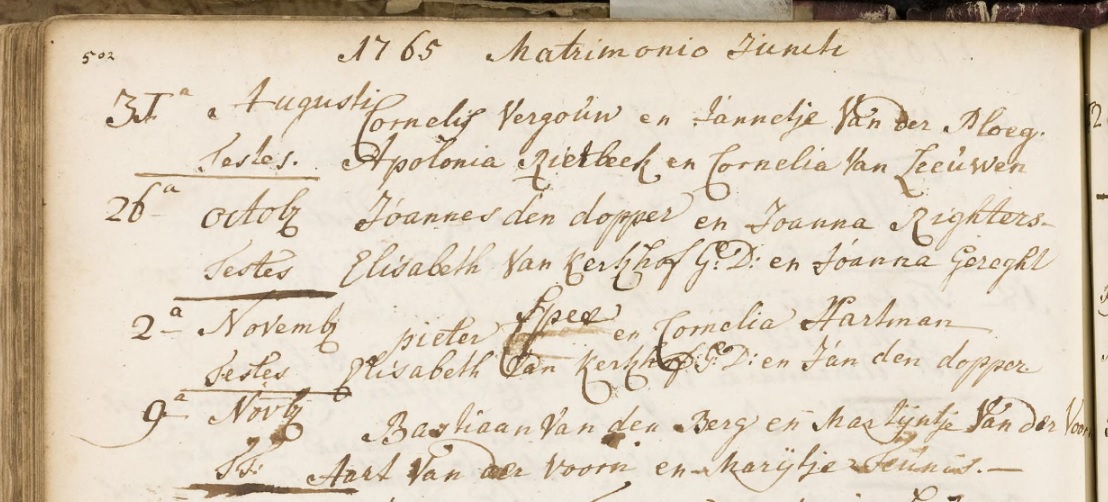 502 1765 Matrimonio Juncti
31ª Augusti Cornelis Vergouw en Jannetje Van der Ploeg.
Testes. Apolonia Rietbeek en Cornelia Van Leeuwen
26ª octob Joannes den dopper en Joanna Righters
Testes Elisabeth Van Kerkhof G: D: en Joanna Gereght
2ª Novemb pieter Spee en Cornelia Hartman
Testes Elisabeth Van Kerkhof G: D: en Jan den dopper
9ª Novb Bastiaan Van den Berg en Martijntje Van der Voorn
TT: Aart Van der Voorn en Marijtje Teunis.